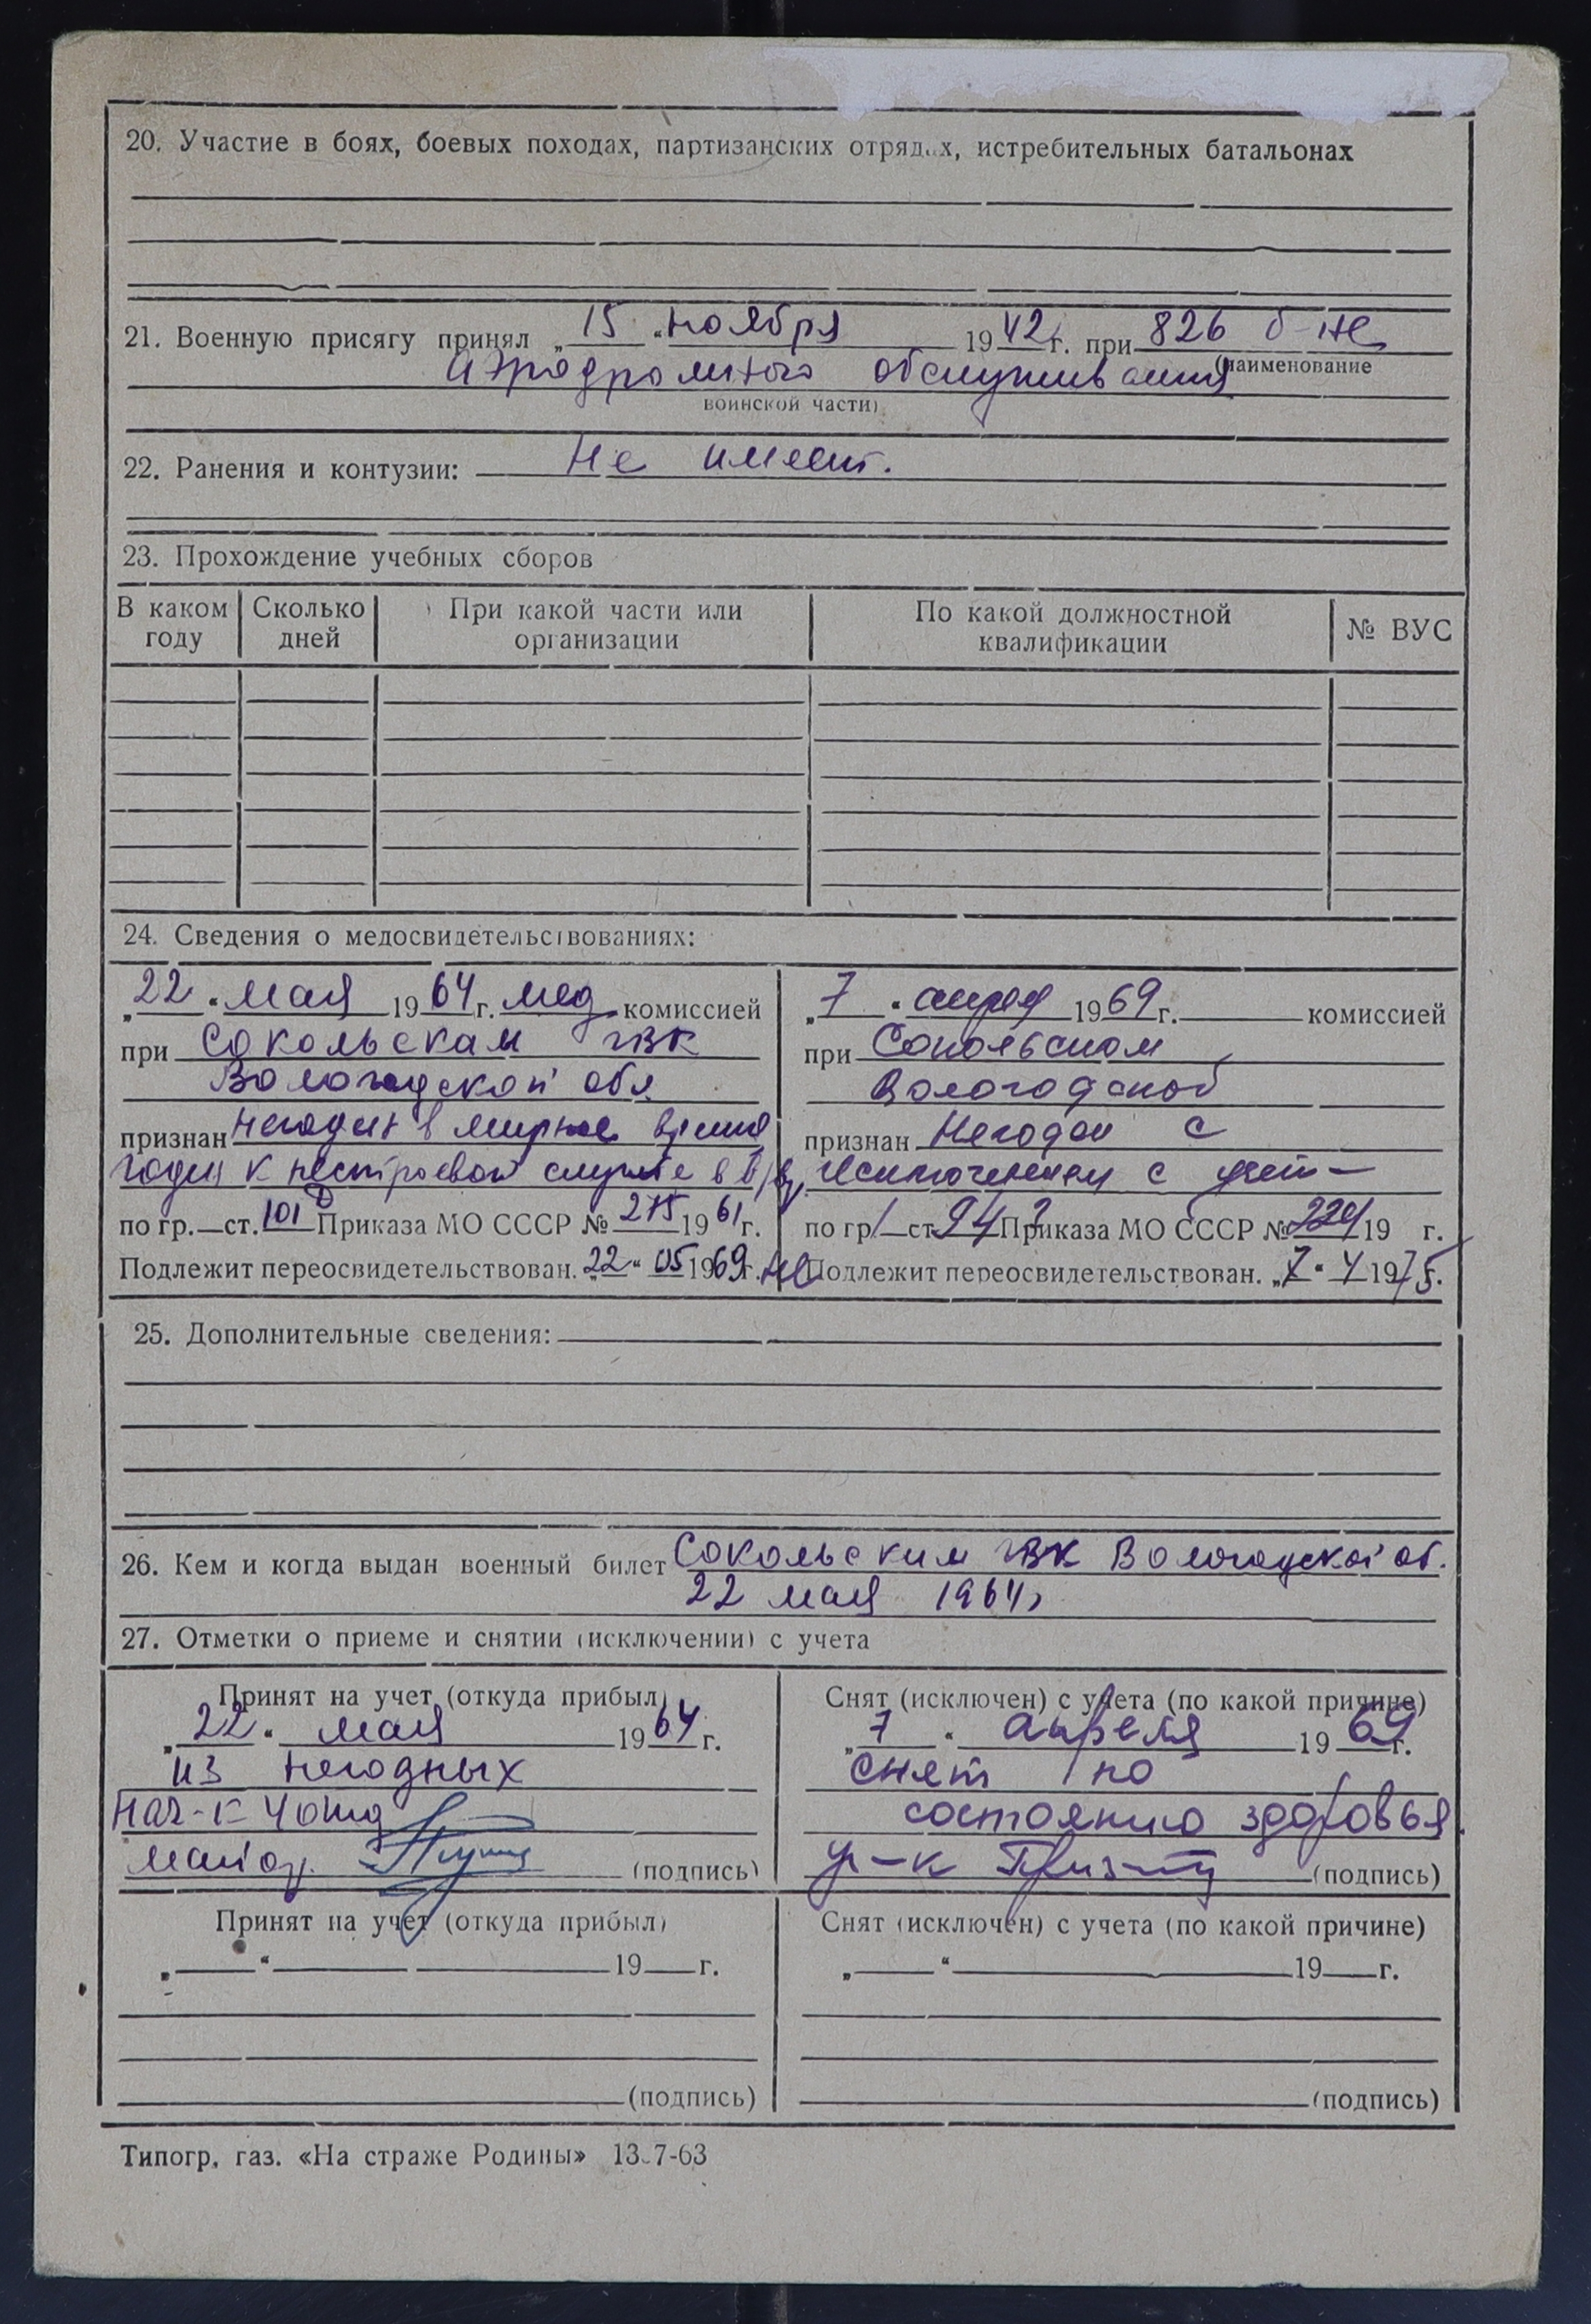 20. Участие в боях, боевых походах, партизанских отрядах, истребительных батальонах
21. Военную присягу принял „15“ ноября 1942 г. при 826 б-не
(наименование
аэродромного обслуживания
воинской части)
22. Ранения и контузии: Не имеет.
23. Прохождение учебных сборов
В каком году Сколько дней При какой части или организации По какой должностной квалификации № ВУС
24. Сведения о медосвидетельствованиях:
„22“ мая 1964 г. мед комиссией
при Сокольскам ГВК
Вологодской обл.
признан негоден в мирное время
годен к нестроевой службе в в/вр
по гр.—ст. 101 Приказа МО СССР № 275 1961 г.
Подлежит переосвидетельствован. „22“ 05 1969 г.
„7“ апреля 1969 г. комиссией
при Сокольском
Вологодской
признан Негоден с
исключением с учет
по гр 1 ст 94 Приказа МО СССР № 224 19 г.
не Подлежит переосвидетельствован. „7“ 4 1975 г.
25. Дополнительные сведения:
26. Кем и когда выдан военный билет Сокольским ГВК Вологодской об.
22 мая 1964г
27. Отметки о приеме и снятии (исключении) с учета
Принят на учет (откуда прибыл)
„22“ мая 1964 г.
из негодных
Нач-к 4 отд
майор (подпись)
Снят (исключен) с учета (по какой причине)
„7“ апреля 1969 г.
снят по
состоянию здоровья.
(подпись)
Принят на учет (откуда прибыл)
„ “ 19 г.
(подпись)
Снят (исключен) с учета (по какой причине)
„ “ 19 г.
(подпись)
Типогр. газ. «На страже Родины» 13.7-63